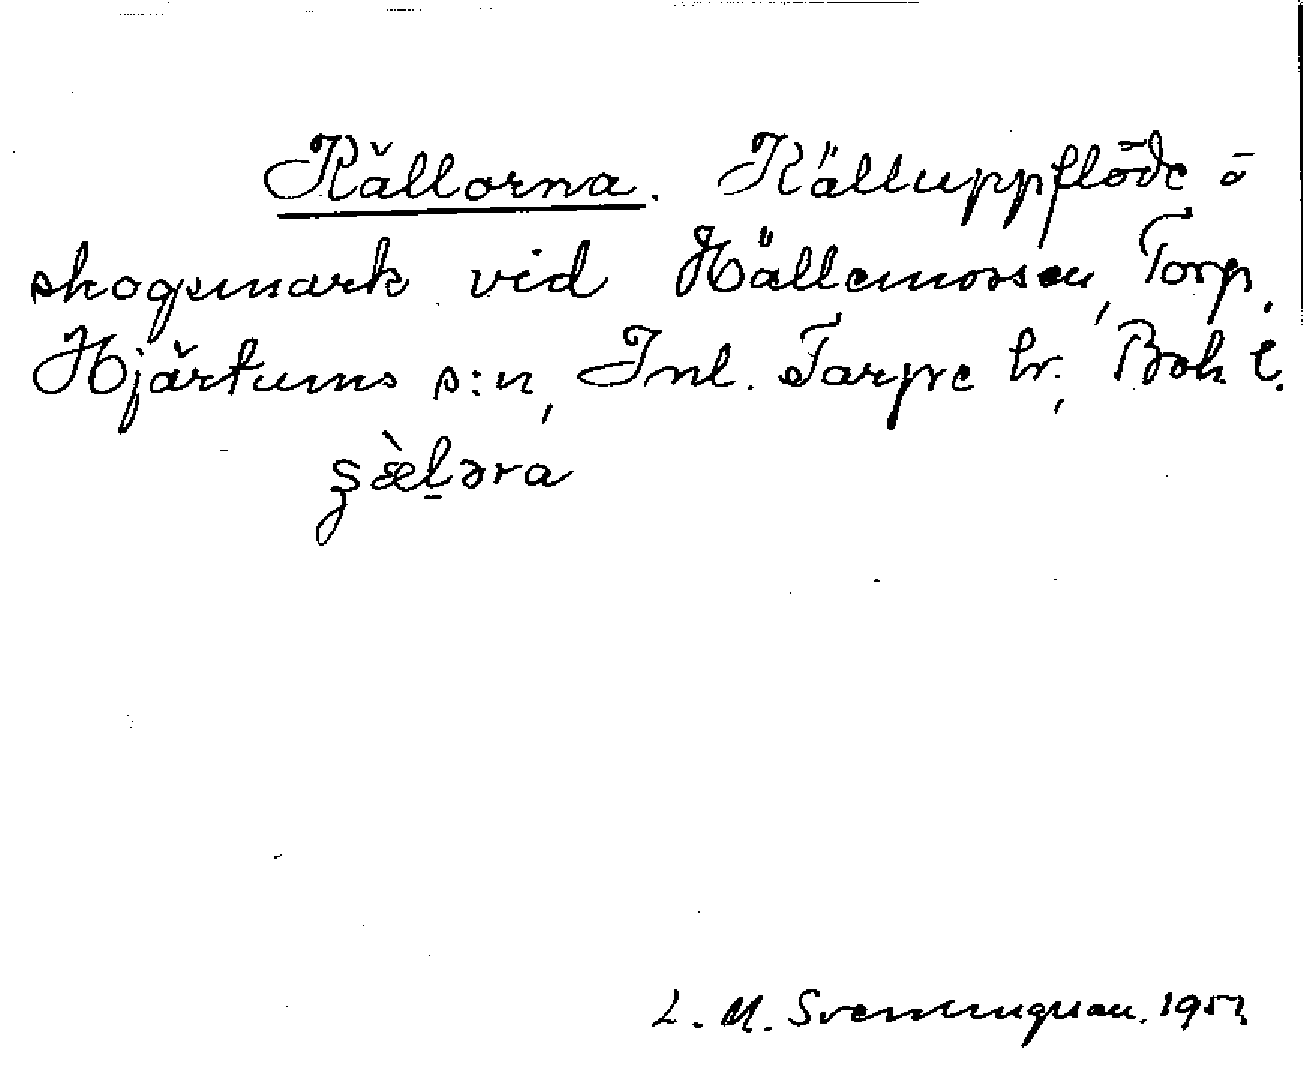 Källorna. Källuppflöde å
skogsmark vid Hällemossen, Torp,
Hjärtums s:n, Inl. Torpe hr., Boh. l.
L. M. Svenungsson. 1951.